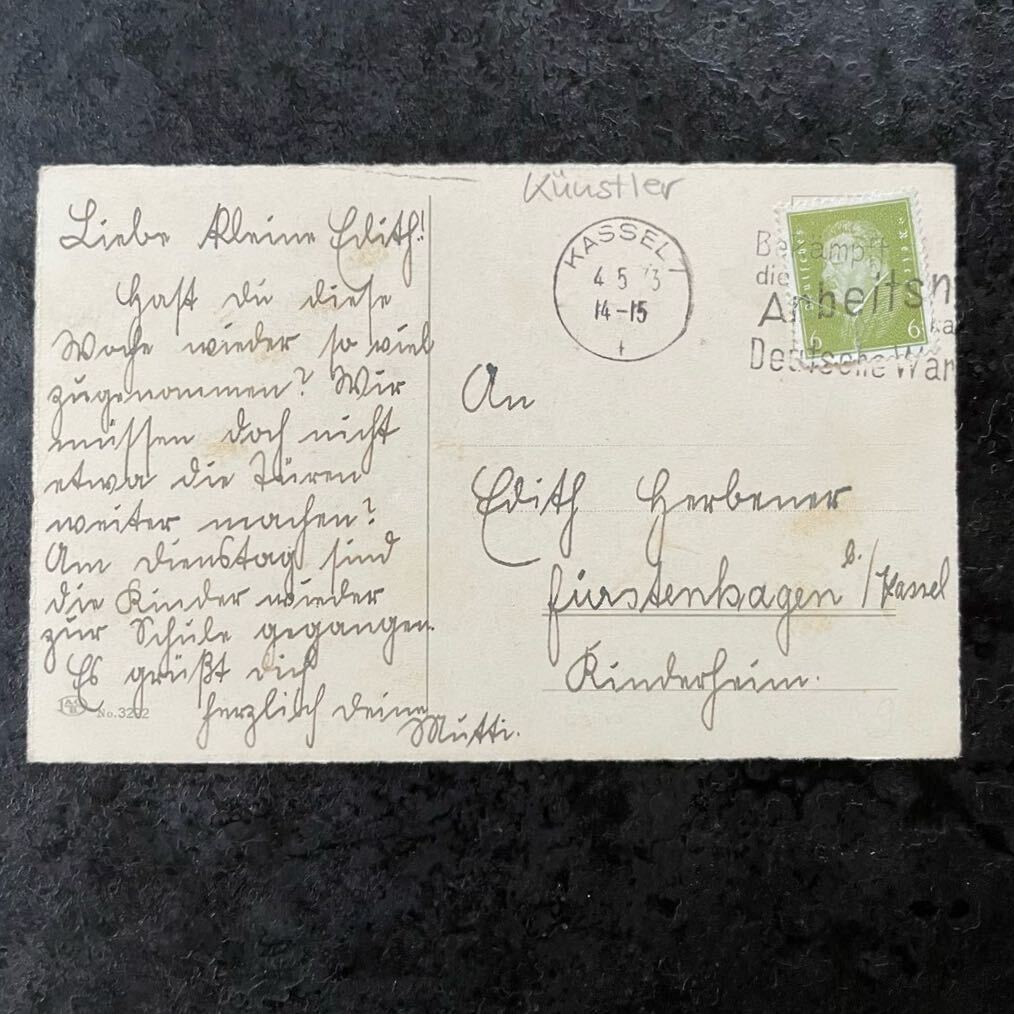 Künstler
Liebe kleine Edith!
Hast du diese
Woche wieder so viel
zugenommen? Wir
müssen doch nicht
etwa die Türen
weiter machen?
Am Dienstag sind
die Kinder wieder
zur Schule gegangen.
Es grüßt dich
herzlich deine
Mutti.
No. 3292
KASSEL 1
4 5 3
14-15
Bekämpft
die
Arbeitsn
ka
Deutsche War
Deutsches Reich
6 6
An
Edith Herbener
Fürstenhagen b./Kassel
Kinderheim.